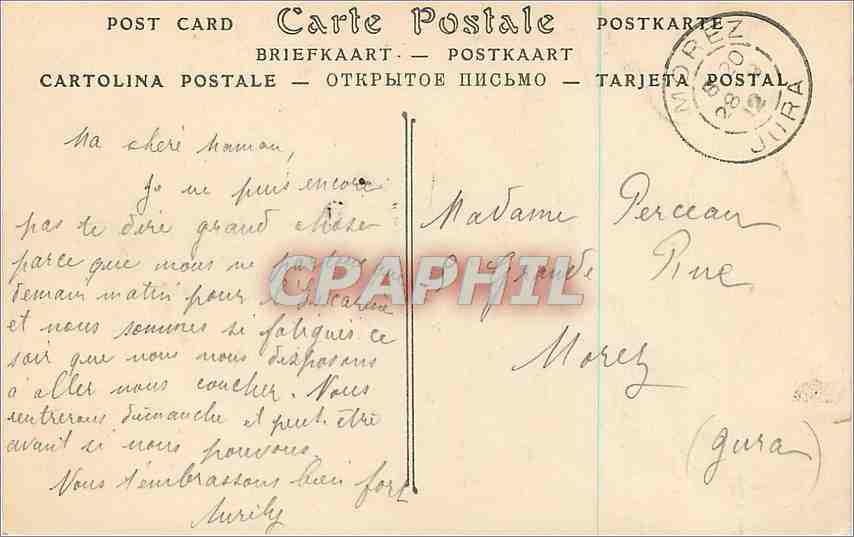 POST CARD Carte Postale POSTKARTE
BRIEFKAART - POSTKAART
CARTOLINA POSTALE — ОТКРЫТОЕ ПИСЬМО — TARJETA POSTAL
MOREZ
8 30
28
12
JURA
Ma cheré Maman,
Je ne puis encore
pas te dire grand chose
parce que nous ne partons que
demain matin pour
et nous sommes si fatigués ce
soir que nous nous disposons
à aller nous coucher. Nous
rentrerons dimanche et peut-être
avant si nous pouvons.
Nous t'embrassons bien fort
Madame Perceau
Grande Rue
Morez
(Jura)
CPAPHIL